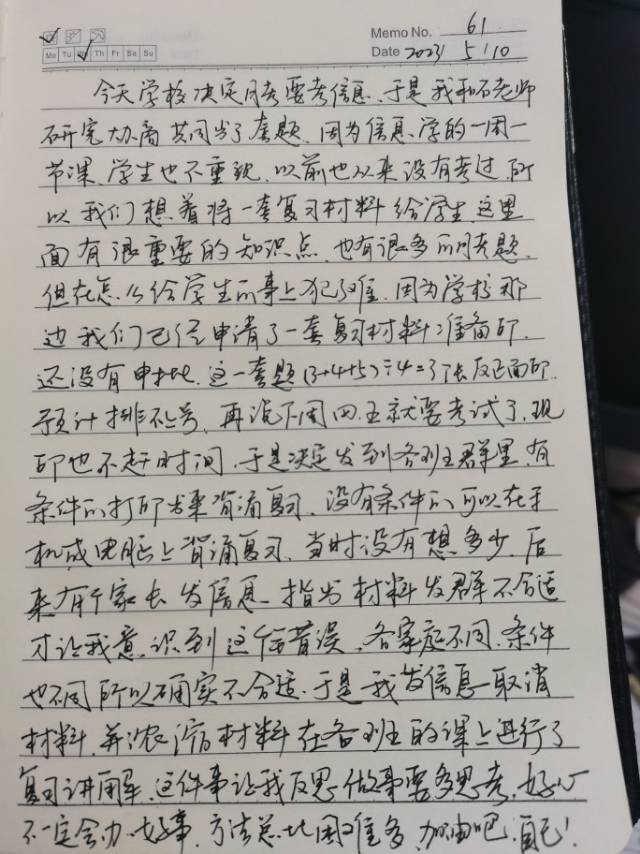 Memo No. 61
Mo Tu We Th Fr Sa Su
Date 2023 5/10
今天学校决定月考要考信息、于是我和石老师
研究协商共同出了套题、因为信息学的一周一
节课、学生也不重视、以前也从来没有考过、所
以我们想着将一套复习材料给学生、这里
面有很重要的知识点、也有很多的月考题、
但在怎么给学生的事上犯了难、因为学校那
边我们已经申请了一套复习材料准备印、
还没有申批、这一套题(3+4+5)÷4=3张反正面印、
预计排不上号、再说下周四、五就要考试了、现
印也不赶时间、于是决定发到各班主群里、有
条件的打印出来背诵复习、没有条件的可以在手
机或电脑上背诵复习、当时没有想多少、后
来有个家长发信息、指出材料发群不合适
才让我意识到这个错误、各家庭不同、条件
也不同所以确实不合适、于是我发信息取消
材料、并浓缩材料在各班的课上进行了
复习讲解、这件事让我反思做事要多思考、好心
不一定会办好事、方法总比困难多、加油吧、自己！